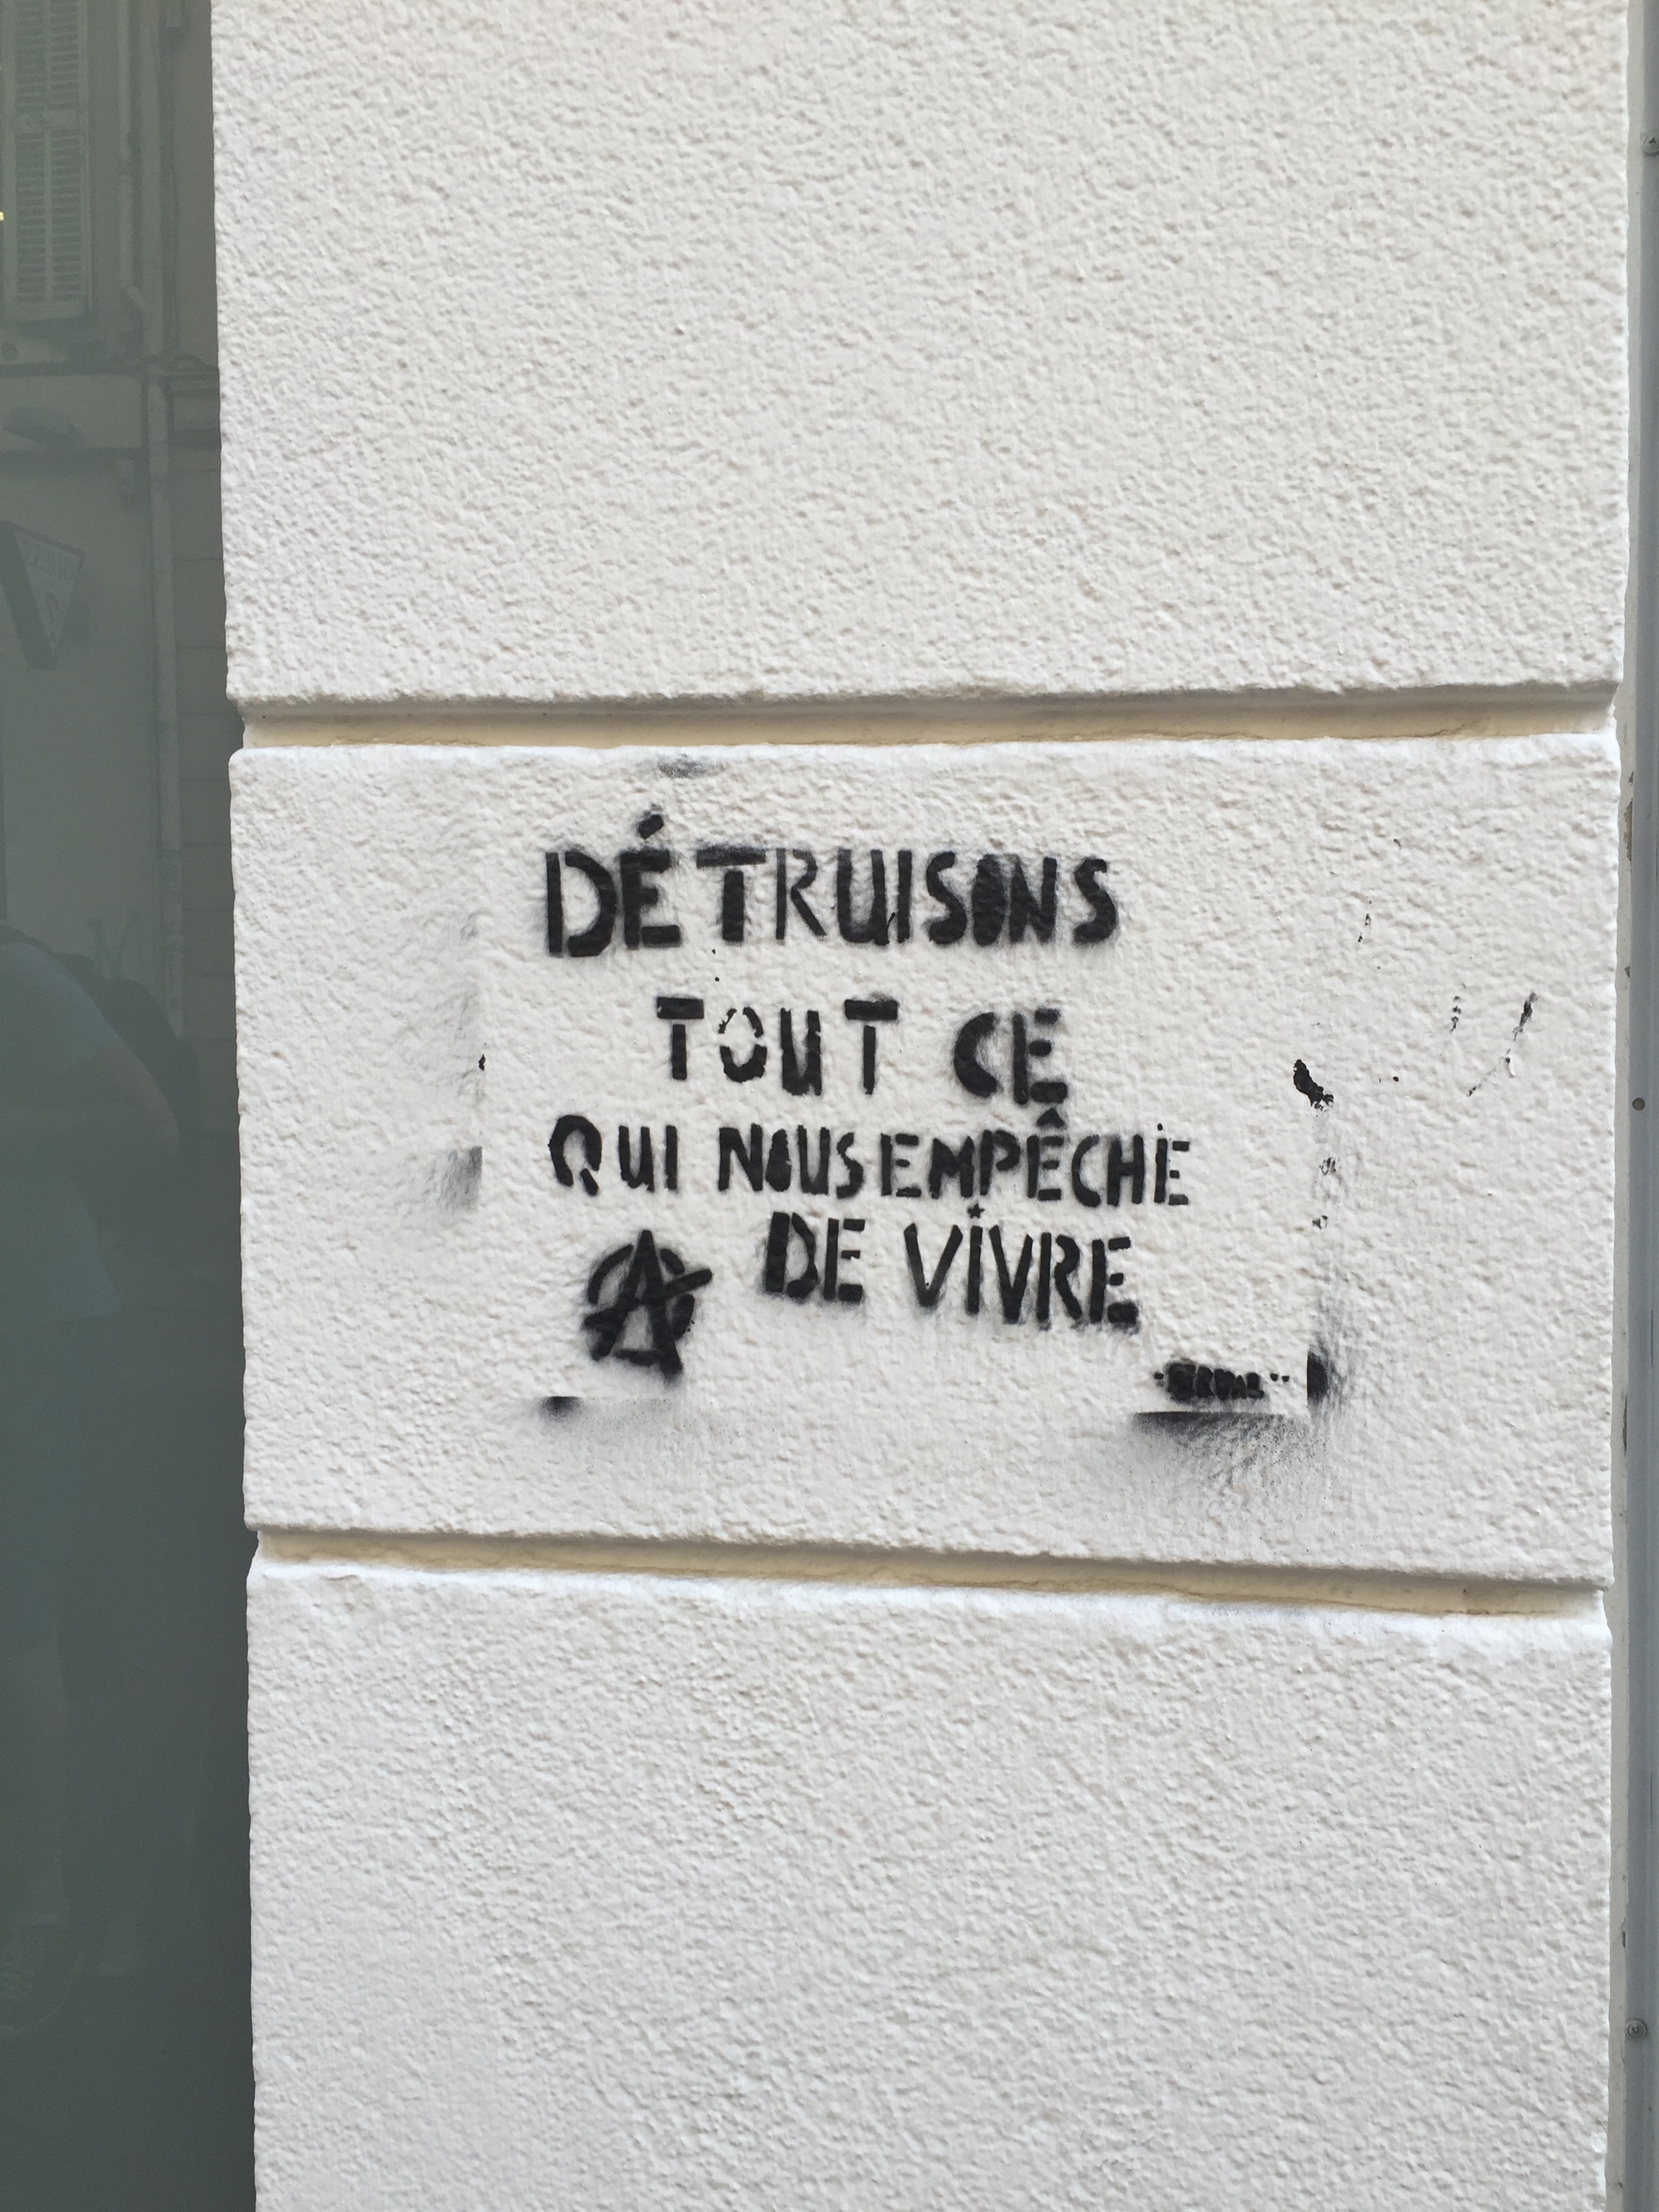 DÉTRUISONS
TOUT CE
QUI NOUS EMPÊCHE
DE VIVRE